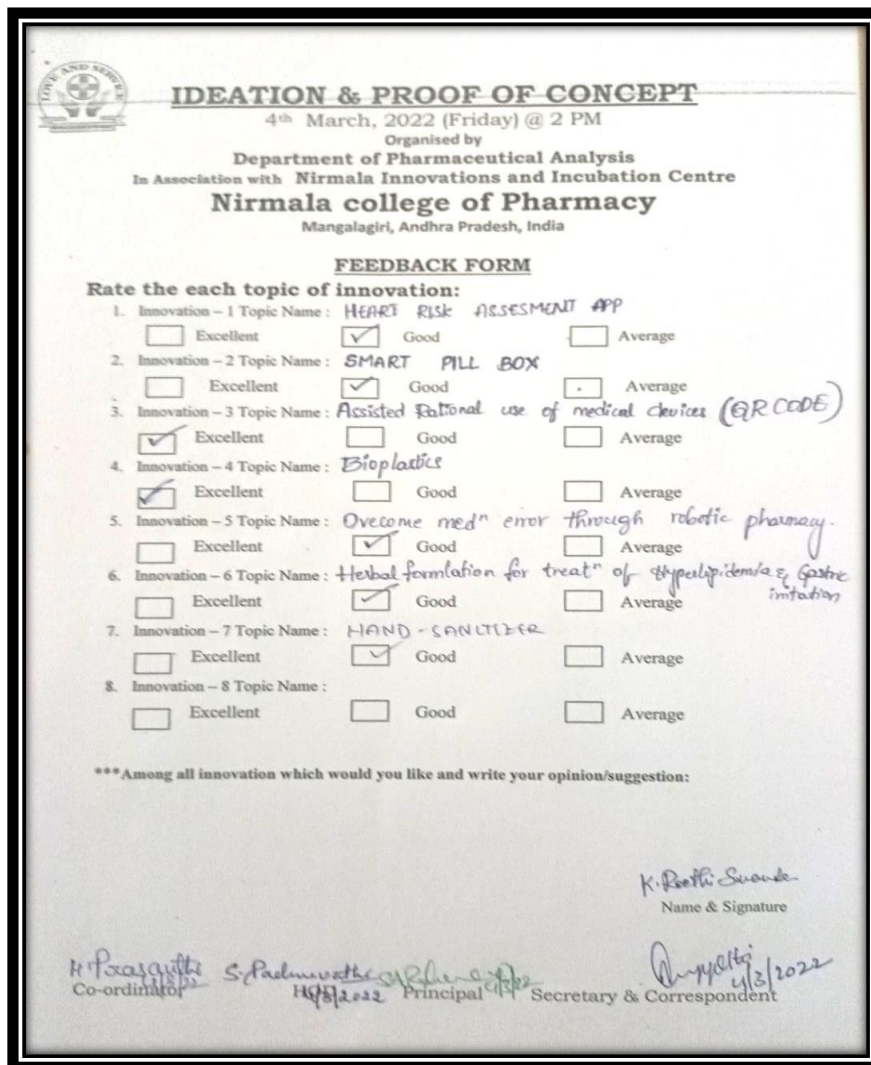 LOVE AND SERVE
IDEATION & PROOF OF CONCEPT
4th March, 2022 (Friday) @ 2 PM
Organised by
Department of Pharmaceutical Analysis
In Association with Nirmala Innovations and Incubation Centre
Nirmala college of Pharmacy
Mangalagiri, Andhra Pradesh, India
FEEDBACK FORM
Rate the each topic of innovation:
1. Innovation – 1 Topic Name : HEART RISK ASSESMENT APP
Excellent ✓ Good Average
2. Innovation – 2 Topic Name : SMART PILL BOX
Excellent ✓ Good Average
3. Innovation – 3 Topic Name : Assisted Rational use of medical devices (QR CODE)
✓ Excellent Good Average
4. Innovation – 4 Topic Name : Bioplastics
✓ Excellent Good Average
5. Innovation – 5 Topic Name : Ovecome medn error through robotic pharmacy.
Excellent ✓ Good Average
6. Innovation – 6 Topic Name : Herbal formlation for treatn of Hyperlipidemia & Gastric
irritation
Excellent ✓ Good Average
7. Innovation – 7 Topic Name : HAND-SANITIZER
Excellent ✓ Good Average
8. Innovation – 8 Topic Name :
Excellent Good Average
***Among all innovation which would you like and write your opinion/suggestion:
Name & Signature
S. Padmavathi 4/3/2022
Co-ordinator Principal Secretary & Correspondent